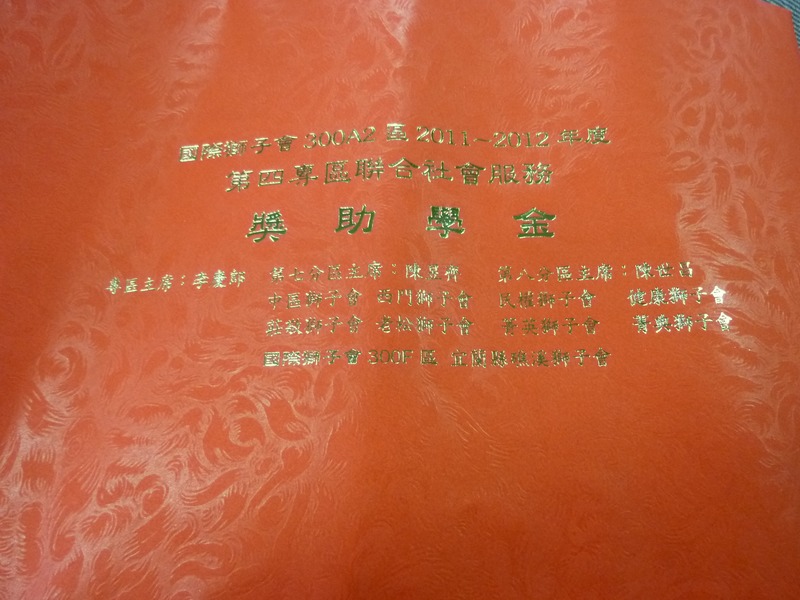 國際獅子會 300A2 區 2011~2012 年度
第四專區聯合社會服務
獎助學金
專區主席：李慶郎 第七分區主席：陳昱齊 第八分區主席：陳世昌
中區獅子會 西門獅子會 民權獅子會 健康獅子會
莊敬獅子會 老松獅子會 菁英獅子會 菁奠獅子會
國際獅子會 300F 區 宜蘭縣礁溪獅子會